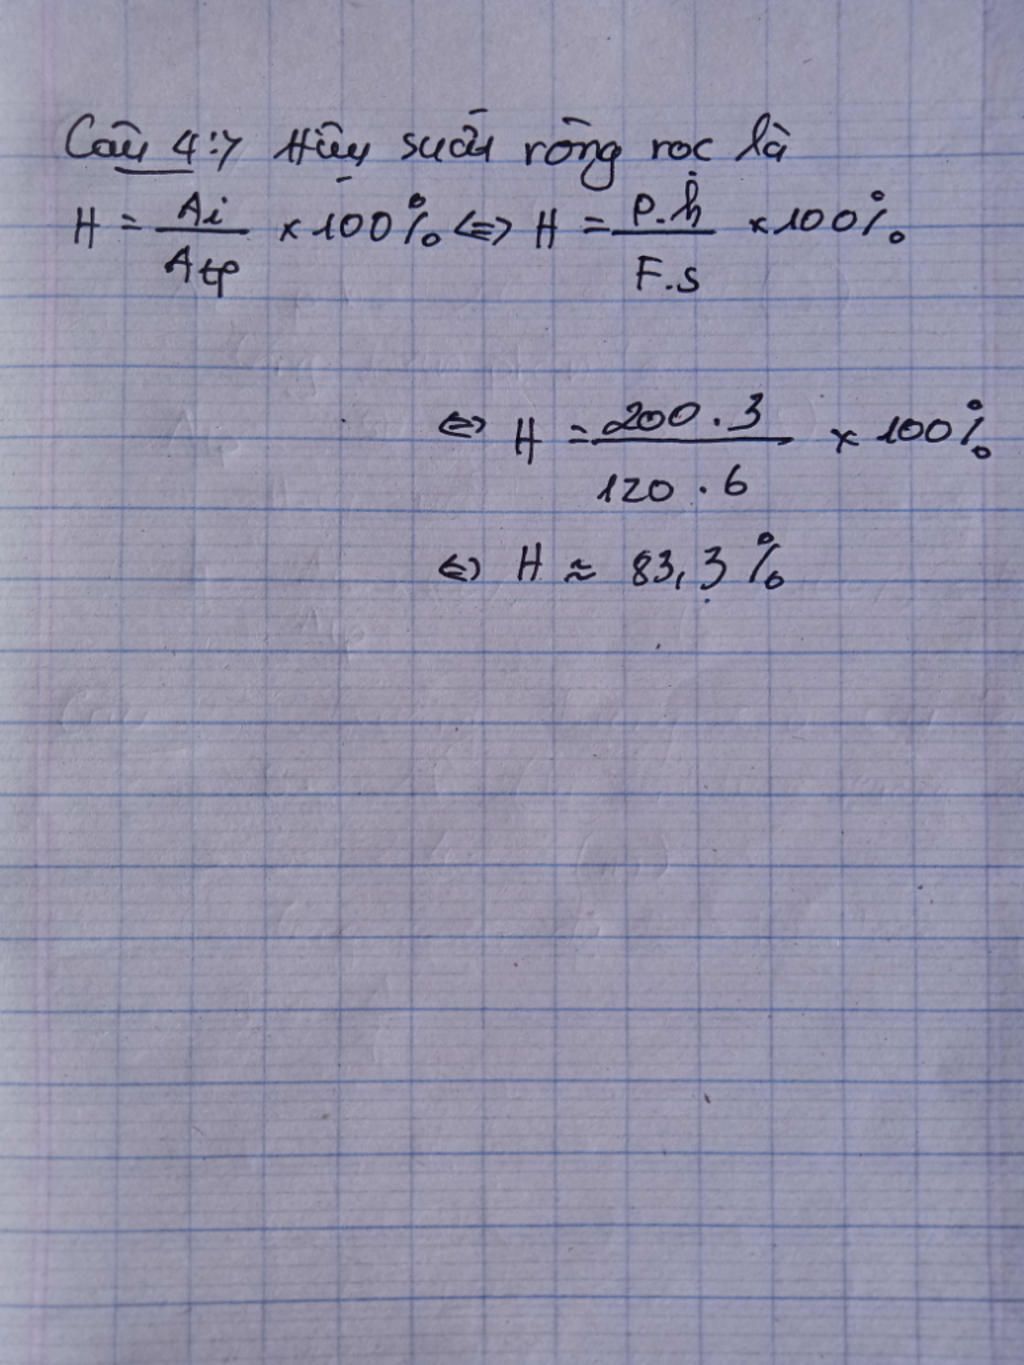 Câu 4:7 Hiệu suất ròng rọc là
H = Ai / Atp × 100% <=> H = P.h / F.s × 100%
<=> H = 200.3 / 120.6 × 100%
<=> H ≈ 83,3%